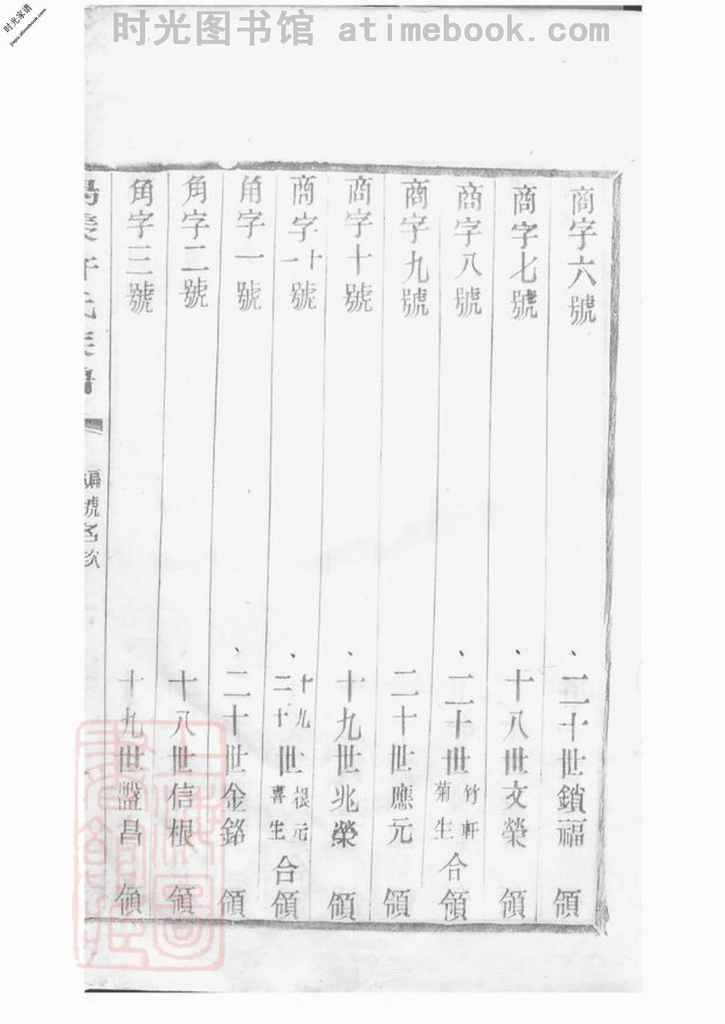 时光图书馆 atimebook.com
时光家谱
商字六號 二十世鎖福 領
商字七號 十八世文榮 領
商字八號 二十世竹軒菊生合領
商字九號 二十世應元 領
商字十號 十九世兆榮 領
商字十一號 十九二十世根元喜生合領
角字一號 二十世金銘 領
角字二號 十八世信根 領
角字三號 十九世盤昌 領
氏族譜
編號名次